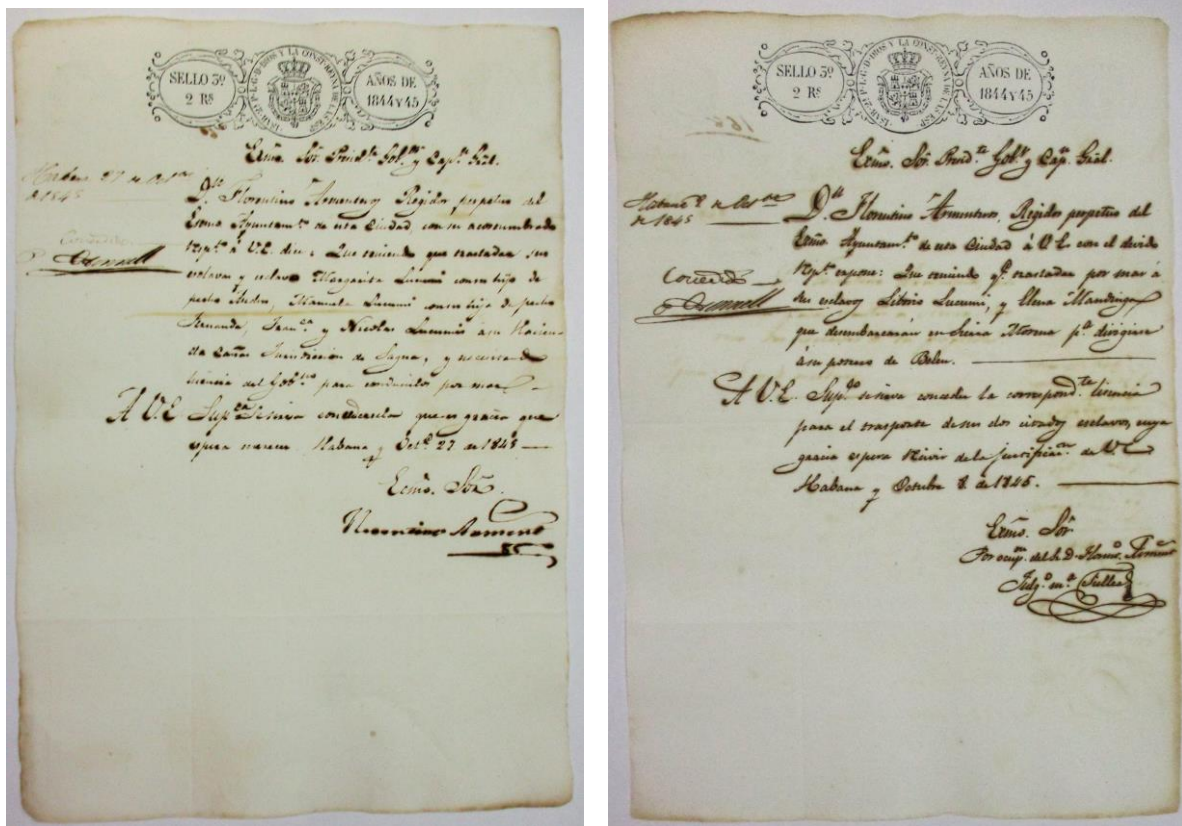 SELLO 3º
2 Rs
AÑOS DE
1844 Y 45
ISAB. 2ª P. L. G. D. DIOS Y LA CONST. REYNA DE LAS ESP.
Exmo. Sor. Presidte. Gobor. y Capn. Gral.
Habana 27 de Octre
de 1845
Dn. Florentino Armenteros Regidor perpetuo del
Exmo Ayuntamto. de esta Ciudad con su acostumbrado
respto. á V.E. dice: Que teniendo que trasladar sus
esclavas y esclavo Margarita Lucumí con su hijo de
pecho Andres, Manuela Lucumí con su hija de pecho
Fernanda, Franca. y Nicolas Lucumis á su Hacienda
de Cañas Jurisdiccion de Sagua, y necesitando
licencia del Gobno. para conducirlos por mar
Concedido
O'Donnell
A V.E. Supca. se sirva concedersela que es gracia que
espera merecer Habana y Octe. 27 de 1845
Exmo. Sor.
Florentino Armento
SELLO 3º
2 Rs
AÑOS DE
1844 Y 45
ISAB. 2ª P. L. G. D. DIOS Y LA CONST. REYNA DE LAS ESP.
Exmo. Sor. Presdte. Gobr. y Capn. Gral.
Habana 8 de Octre
de 1845
Dn. Florentino Armenteros, Regidor perpetuo del
Exmo. Ayuntamto. de esta Ciudad á V.E. con el devido
respto. expone: Que teniendo qe. trasladar por mar á
sus esclavos Liborio Lucumí, y Elena Mandinga
que desembarcarán en Sierra Morena pa. dirigirse
á su potrero de Belen.
Concedido
O'Donnell
A V.E. Supco. se sirva conceder la correspondte. licencia
para el trasporte de sus dos citados esclavos, cuya
gracia espera recivir de la justificacn. de V.E.
Habana y Octubre 8 de 1845.
Exmo. Sor
Por ocupn. del Sr. D. Florno. Armento